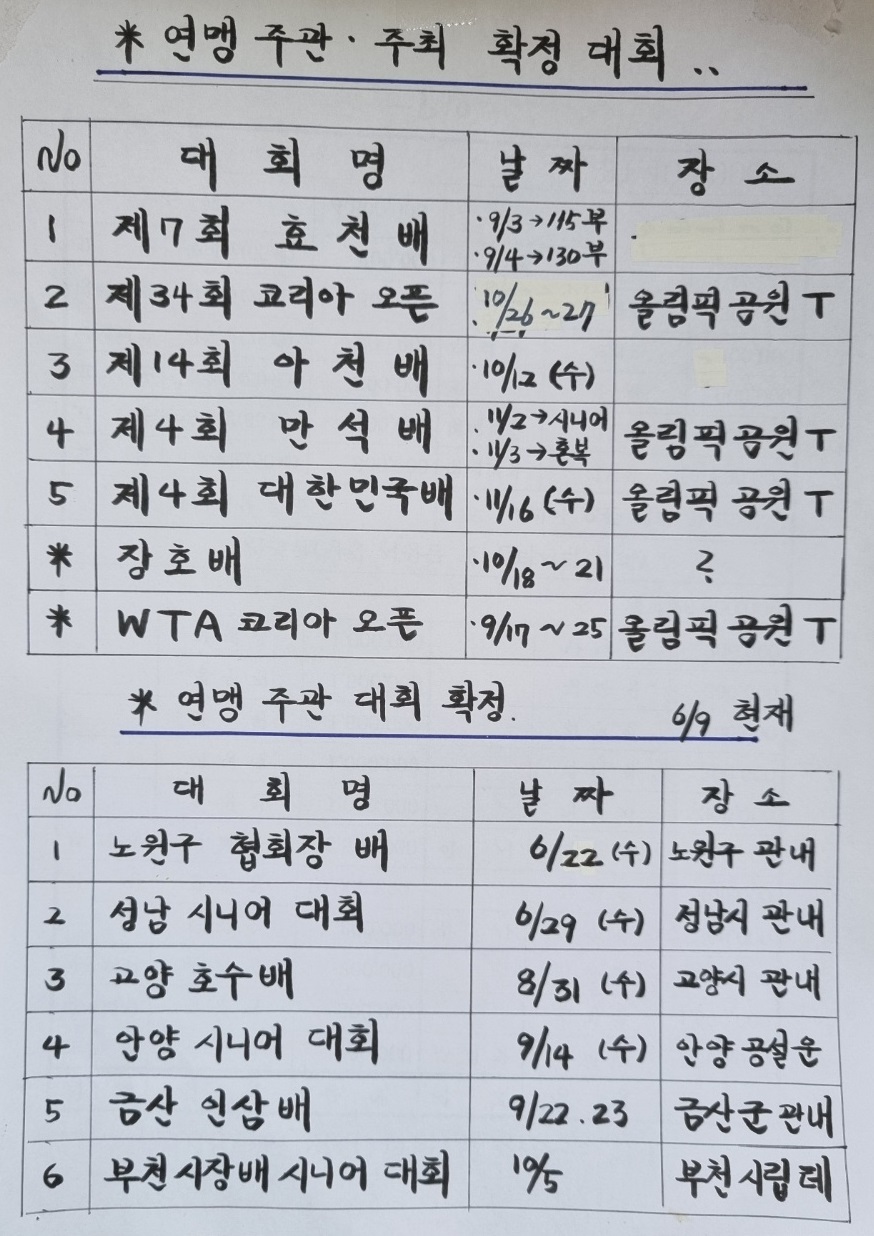 * 연맹 주관 · 주최 확정 대회 ..
No 대 회 명 날 짜 장 소
1 제7회 효천배 ·9/3→115부
·9/4→130부
2 제34회 코리아 오픈 10/26~27 올림픽 공원 T
3 제14회 아천배 ·10/12 (수)
4 제4회 만석배 ·11/2→시니어 올림픽 공원 T
·11/3→혼복
5 제4회 대한민국배 ·11/16 (수) 올림픽 공원 T
* 장호배 ·10/18 ~ 21 ?
* WTA 코리아 오픈 ·9/17 ~ 25 올림픽 공원 T
* 연맹 주관 대회 확정. 6/9 현재
No 대 회 명 날 짜 장 소
1 노원구 협회장 배 6/22 (수) 노원구 관내
2 성남 시니어 대회 6/29 (수) 성남시 관내
3 고양 호수배 8/31 (수) 고양시 관내
4 안양 시니어 대회 9/14 (수) 안양 공설운
5 금산 인삼배 9/22.23 금산군 관내
6 부천시장배 시니어 대회 10/5 부천시립 테